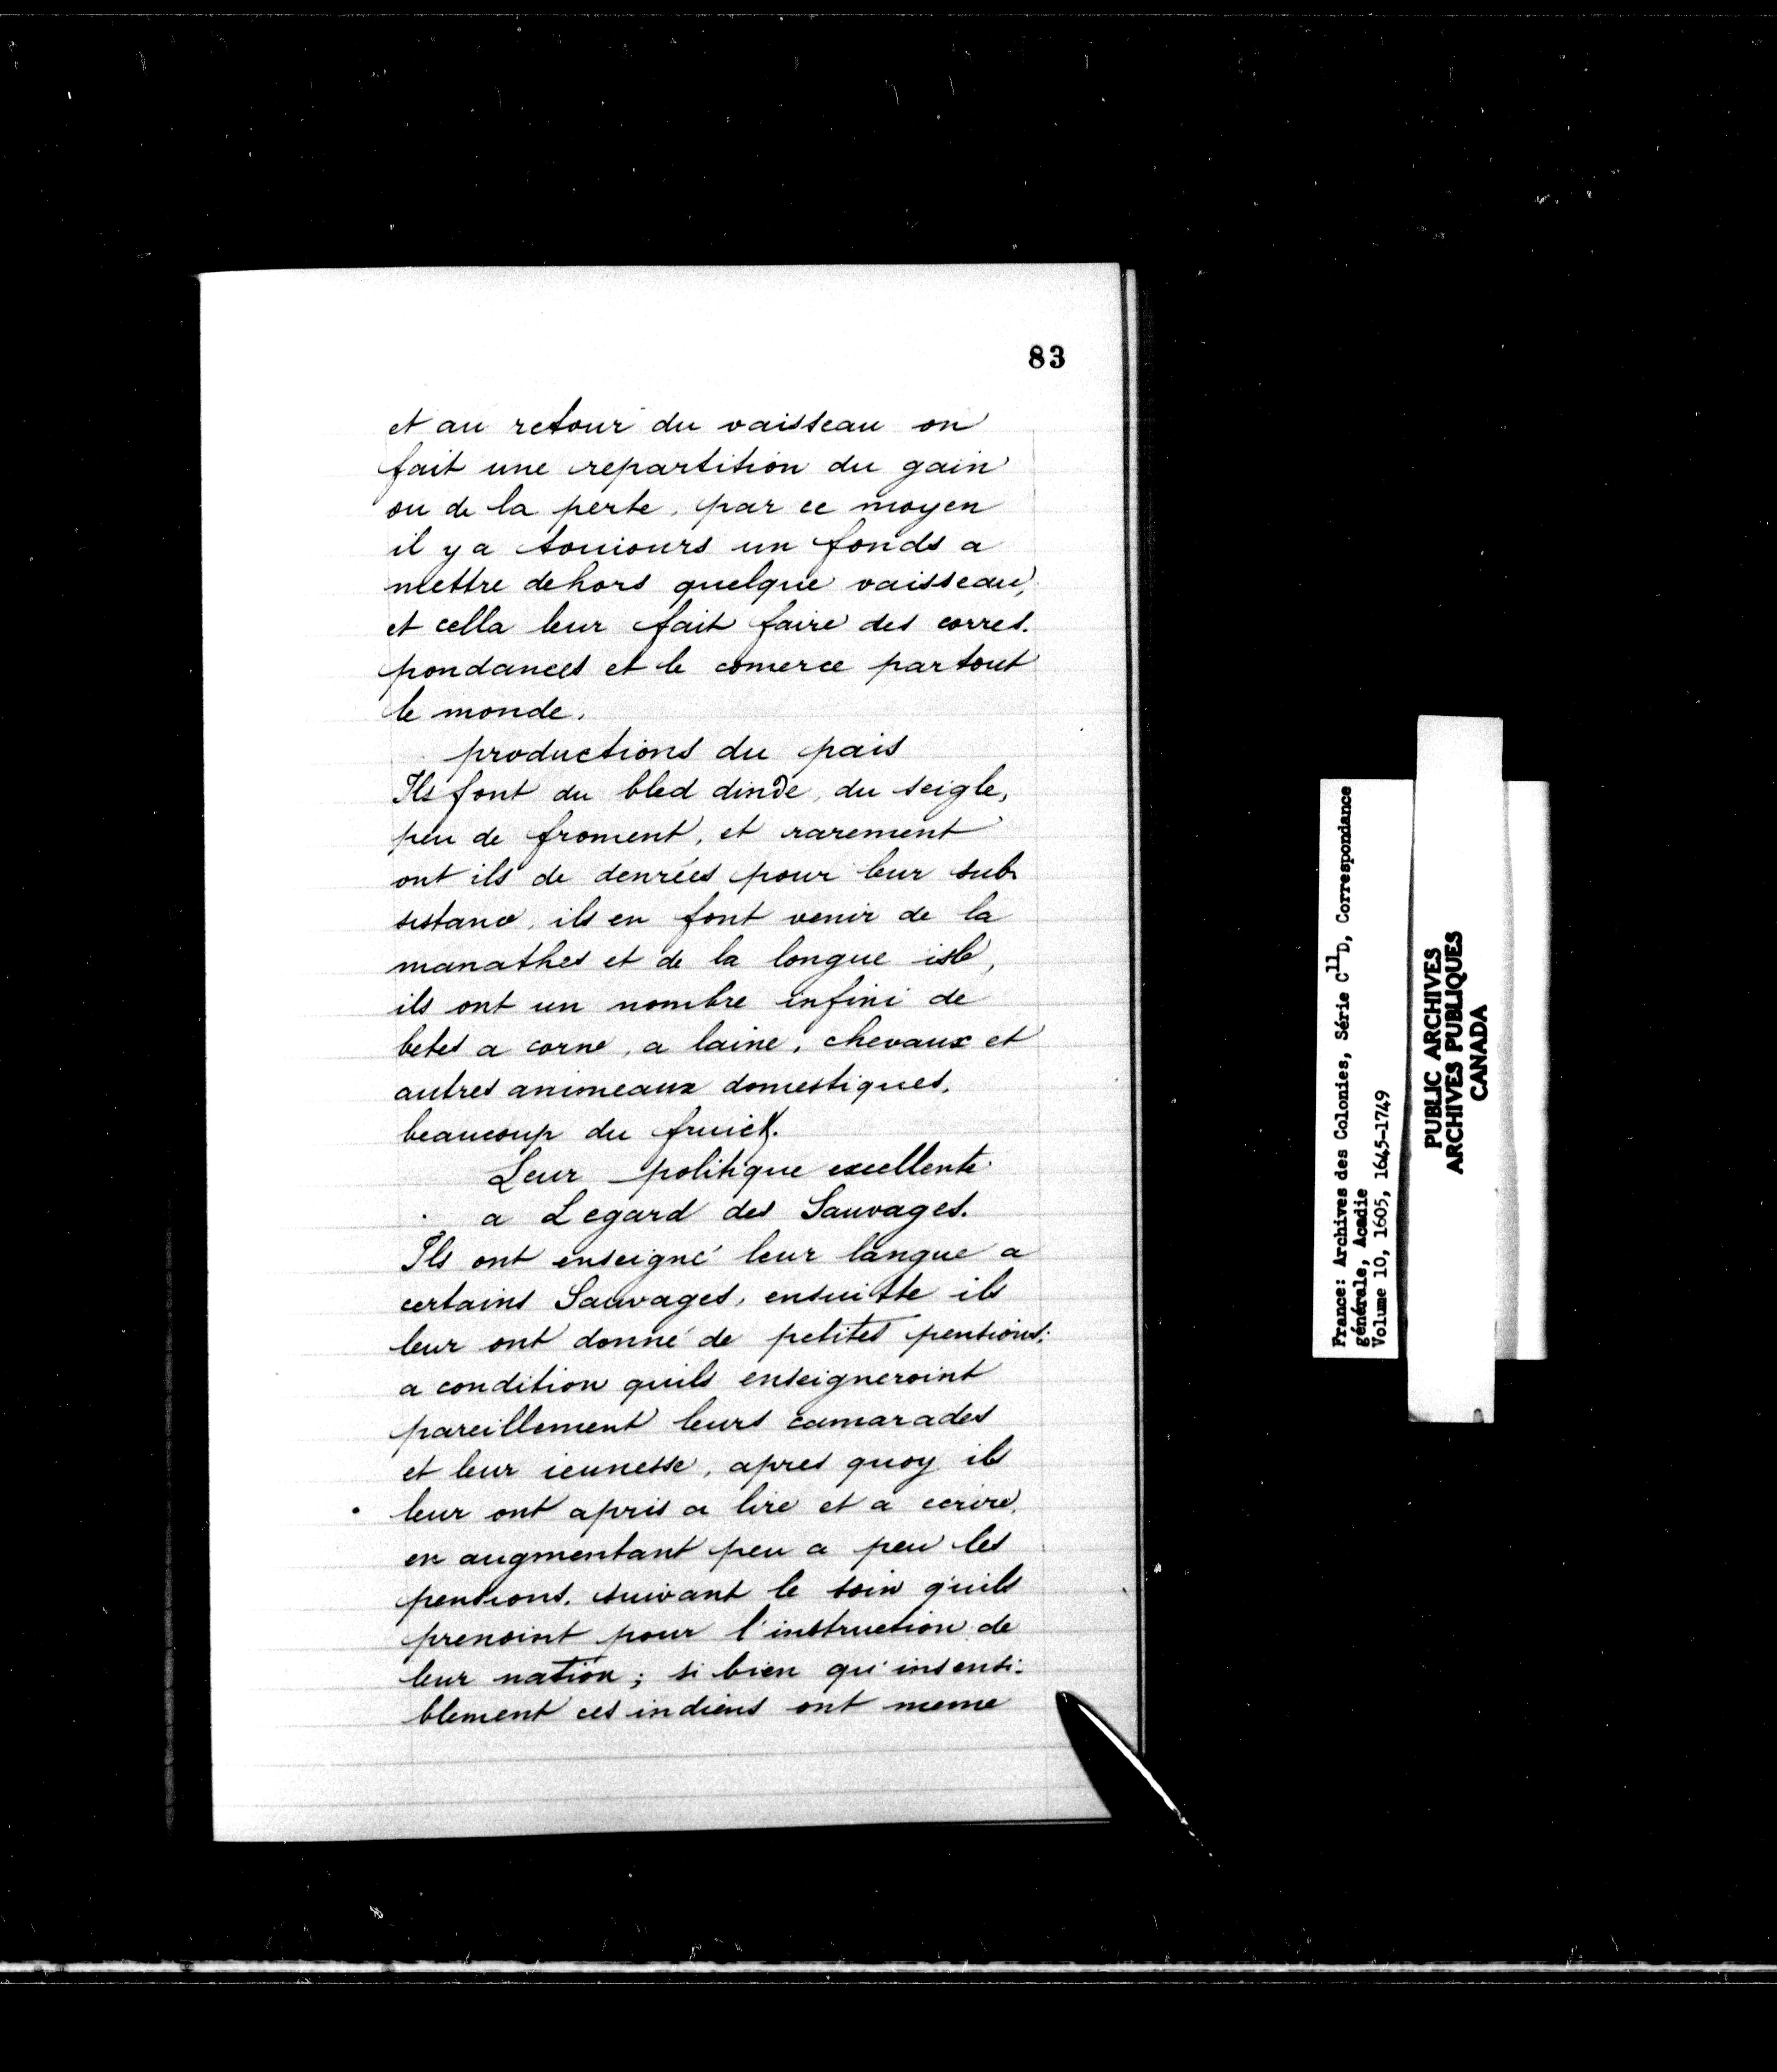 83
et au retour du vaisseau on
fait une repartition du gain
ou de la perte, par ce moyen
il y a touiours un fonds a
mettre dehors quelque vaisseau,
et cella leur fait faire des corres-
pondances et le comerce partout
le monde.
productions du pais
Ils font du bled dinde, du seigle,
peu de froment, et rarement
ont ils de denrées pour leur sub-
sistance, ils en font venir de la
manathes et de la longue isle,
ils ont un nombre infini de
betes a corne, a laine, chevaux et
autres animeaux domestiques,
beaucoup du fruict.
Leur politique excellente
a Legard des Sauvages.
Ils ont enseigné leur langue a
certains Sauvages, ensuitte ils
leur ont donné de petites pensions:
a condition quils enseigneroint
pareillement leurs camarades
et leur ieunesse, apres quoy ils
leur ont apris a lire et a ecrire,
en augmentant peu a peu les
pensions. suivant le soin quils
prenoint pour l'instruction de
leur nation; si bien qu'insensi-
blement ces indiens ont meme
France: Archives des Colonies, Série C11D, Correspondance
générale, Acadie
Volume 10, 1605, 1645-1749
PUBLIC ARCHIVES
ARCHIVES PUBLIQUES
CANADA